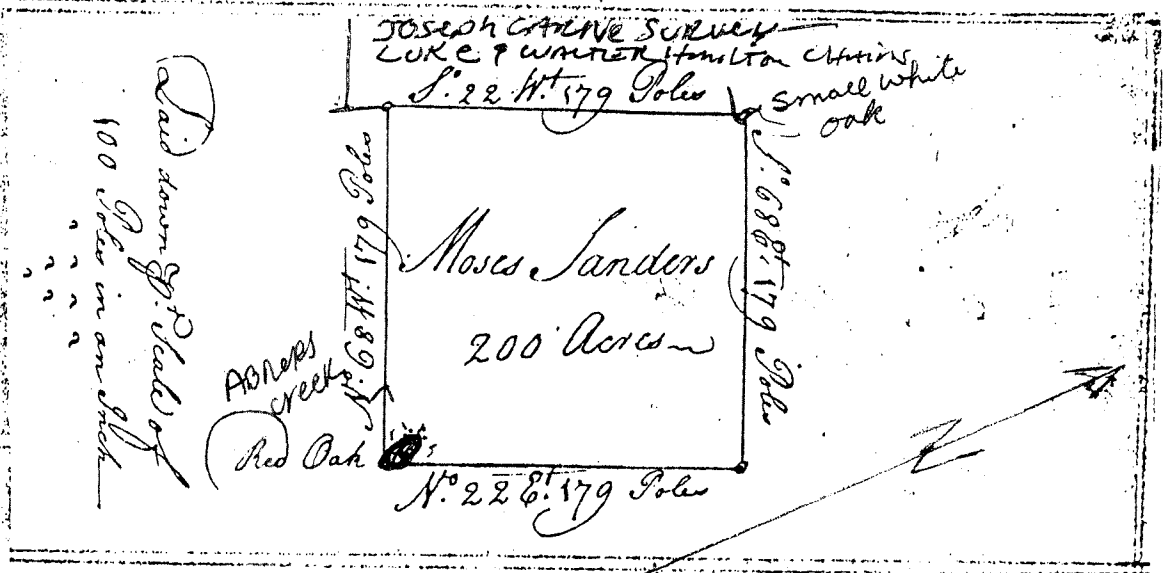 JOSEPH CARNE SURVEY
LUKE & WALTER HAMILTON CHAINS
So. 22 Wt. 179 Poles
Small white
oak
Laid down Pr. Scale of
100 Poles in an Inch
No. 68 Wt. 179 Poles
So. 68 Et. 179 Poles
Moses Sanders
200 Acres
ABNERS
creek
Red Oak
No. 22 Et. 179 Poles